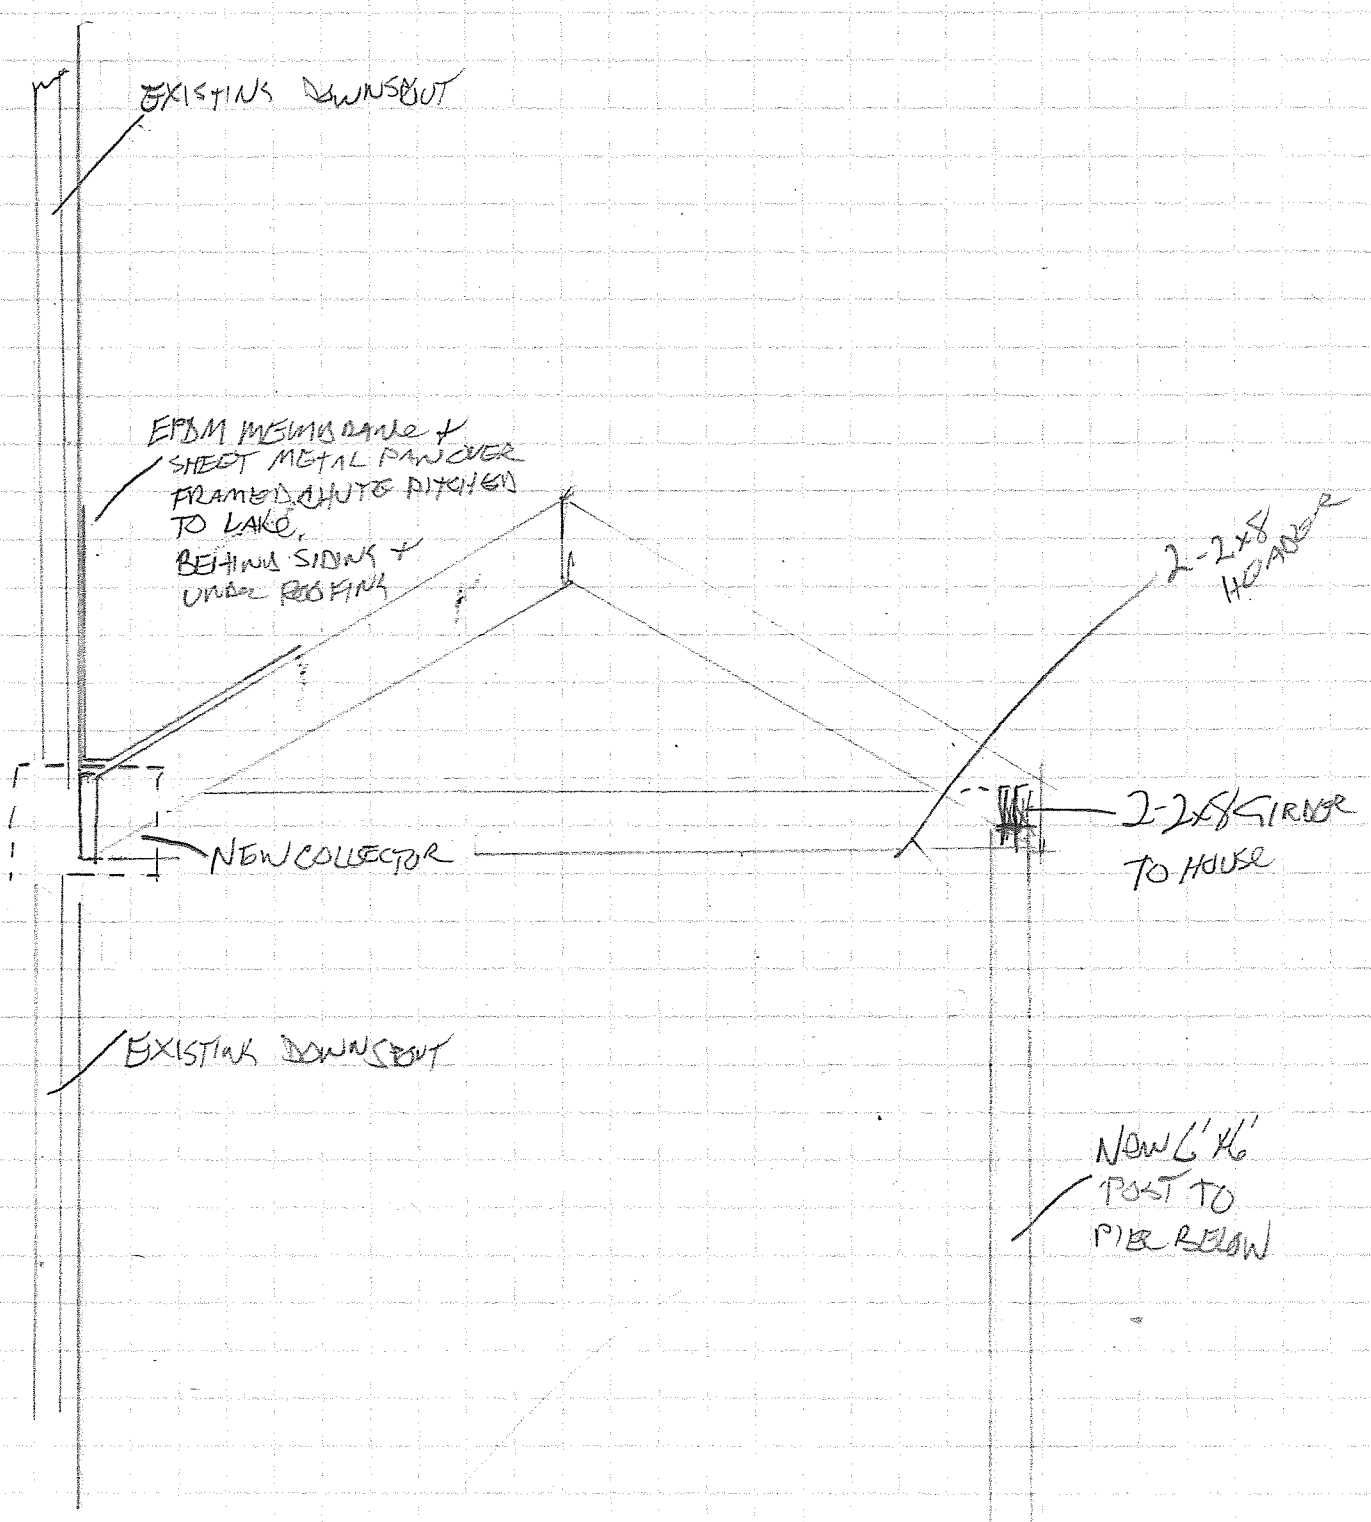 EXISTING DOWNSPOUT
EPDM MEMBRANE +
SHEET METAL PAN OVER
FRAMED CHUTE PITCHED
TO LAKE,
BEHIND SIDING +
UNDER ROOFING
2-2x8
HEADER
2-2x8 GIRDER
TO HOUSE
NEW COLLECTOR
EXISTING DOWNSPOUT
NEW 6'x6'
POST TO
PIER BELOW